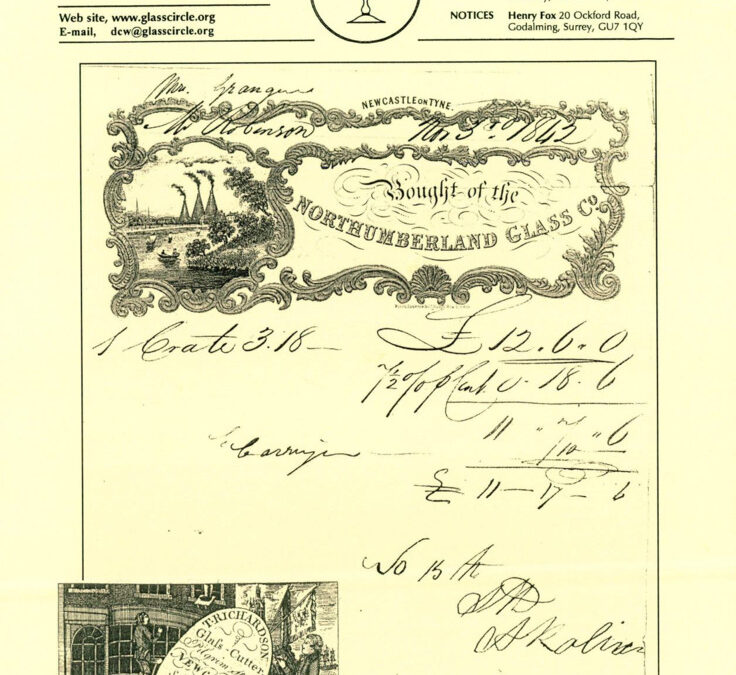 Web site, www.glasscircle.org
E-mail, dcw@glasscircle.org
NOTICES Henry Fox 20 Ockford Road,
Godalming, Surrey, GU7 1QY
NEWCASTLE ON TYNE.
Mr Robinson Nov 3rd 1842
Bought of the
NORTHUMBERLAND GLASS Co.
1 Crate 3.18 — £ 12.6.0
7½ 0.18.6
11 " " 6
Carriage
£ 11 — 17 — 6
T. RICHARDSON
Glass-Cutter
Pilgrim